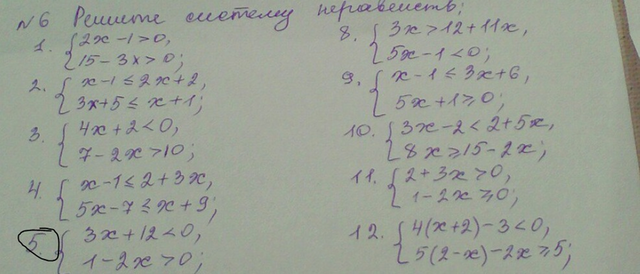 №6 Решите систему неравенств;
1. { 2x - 1 > 0,
15 - 3x > 0;
2. { x - 1 ≤ 2x + 2,
3x + 5 ≤ x + 1;
3. { 4x + 2 < 0,
7 - 2x > 10;
4. { x - 1 ≤ 2 + 3x,
5x - 7 ≤ x + 9;
5 { 3x + 12 < 0,
1 - 2x > 0;
8. { 3x > 12 + 11x,
5x - 1 < 0;
9. { x - 1 ≤ 3x + 6,
5x + 1 ≥ 0;
10. { 3x - 2 < 2 + 5x,
8x ≥ 15 - 2x;
11. { 2 + 3x > 0,
1 - 2x ≥ 0;
12. { 4(x + 2) - 3 < 0,
5(2 - x) - 2x ≥ 5;